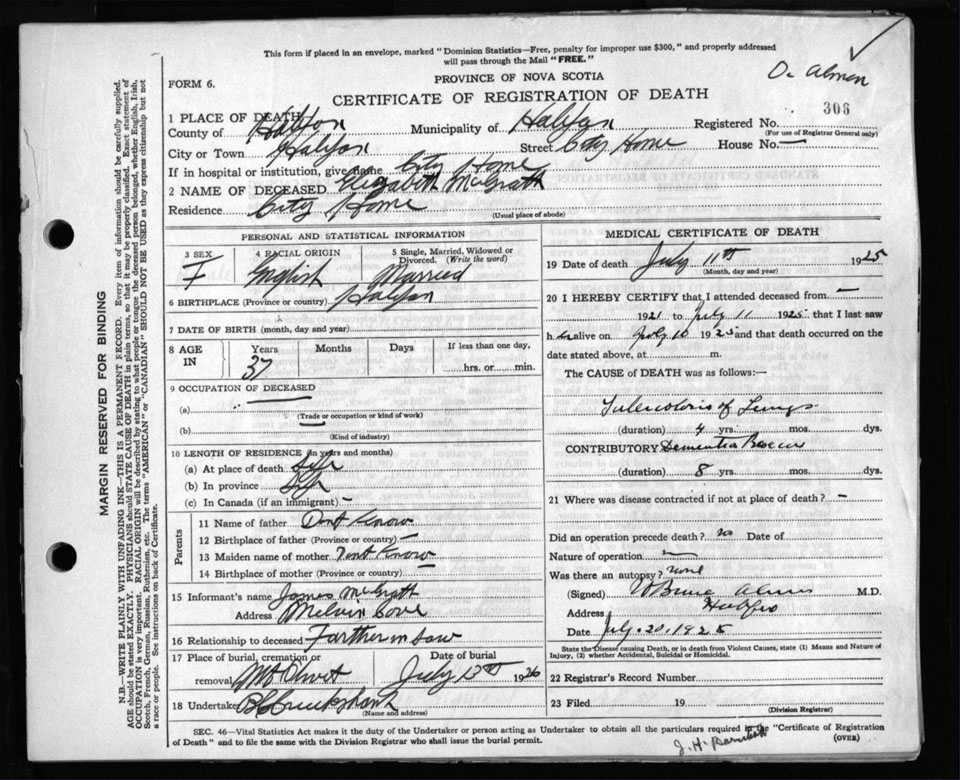 This form if placed in an envelope, marked "Dominion Statistics—Free, penalty for improper use $300," and properly addressed
will pass through the Mail "FREE."
PROVINCE OF NOVA SCOTIA
FORM 6.
CERTIFICATE OF REGISTRATION OF DEATH
308
1 PLACE OF DEATH
County of Halifax Municipality of Halifax Registered No.
(For use of Registrar General only)
City or Town Halifax Street City Home House No. —
If in hospital or institution, give name City Home
2 NAME OF DECEASED Elizabeth McGrath
Residence City Home
(Usual place of abode)
PERSONAL AND STATISTICAL INFORMATION
3 SEX 4 RACIAL ORIGIN 5 Single, Married, Widowed or
Divorced. (Write the word)
F English Married
6 BIRTHPLACE (Province or country) Halifax
7 DATE OF BIRTH (month, day and year)
8 AGE IN Years Months Days If less than one day,
37 hrs. or min.
9 OCCUPATION OF DECEASED
(a)
(Trade or occupation or kind of work)
(b)
(Kind of industry)
10 LENGTH OF RESIDENCE (in years and months)
(a) At place of death Life
(b) In province Life
(c) In Canada (if an immigrant) —
Parents
11 Name of father Dont Know
12 Birthplace of father (Province or country) —
13 Maiden name of mother Dont Know
14 Birthplace of mother (Province or country) —
15 Informant's name James McGrath
Address Melvin Cove
16 Relationship to deceased Farther in Law
17 Place of burial, cremation or Date of burial
removal Mt Olivet July 13th 1926
18 Undertaker Cruikshank
(Name and address)
MEDICAL CERTIFICATE OF DEATH
19 Date of death July 11th 1925
(Month, day and year)
20 I HEREBY CERTIFY that I attended deceased from —
1921 to July 11 1925 that I last saw
h er alive on July 10 1925 and that death occurred on the
date stated above, at m.
The CAUSE of DEATH was as follows:—
Tuberculosis of Lungs
(duration) 4 yrs. mos. dys.
CONTRIBUTORY Dementia Praecox
(duration) 8 yrs. mos. dys.
21 Where was disease contracted if not at place of death? —
Did an operation precede death? no Date of
Nature of operation —
Was there an autopsy? none
(Signed) W Bruce Almon M.D.
Address Halifax
Date July 20, 1925
State the Disease causing Death, or in death from Violent Causes, state (1) Means and Nature of
Injury, (2) whether Accidental, Suicidal or Homicidal.
22 Registrar's Record Number
23 Filed 19
(Division Registrar)
SEC. 46—Vital Statistics Act makes it the duty of the Undertaker or person acting as Undertaker to obtain all the particulars required in the "Certificate of Registration
of Death" and to file the same with the Division Registrar who shall issue the burial permit.
(OVER)
MARGIN RESERVED FOR BINDING
N.B.—WRITE PLAINLY WITH UNFADING INK—THIS IS A PERMANENT RECORD. Every item of information should be carefully supplied.
AGE should be stated EXACTLY. PHYSICIANS should STATE CAUSE OF DEATH in plain terms, so that it may be properly classified. Exact statement of
OCCUPATION is very important. RACIAL ORIGIN will be described by stating to what people or tongue the deceased person belonged, whether English, Irish,
Scotch, French, German, Russian, Ruthenian, etc. The terms "AMERICAN" or "CANADIAN" SHOULD NOT BE USED as they express citizenship but not
a race or people. See instructions on back of Certificate.